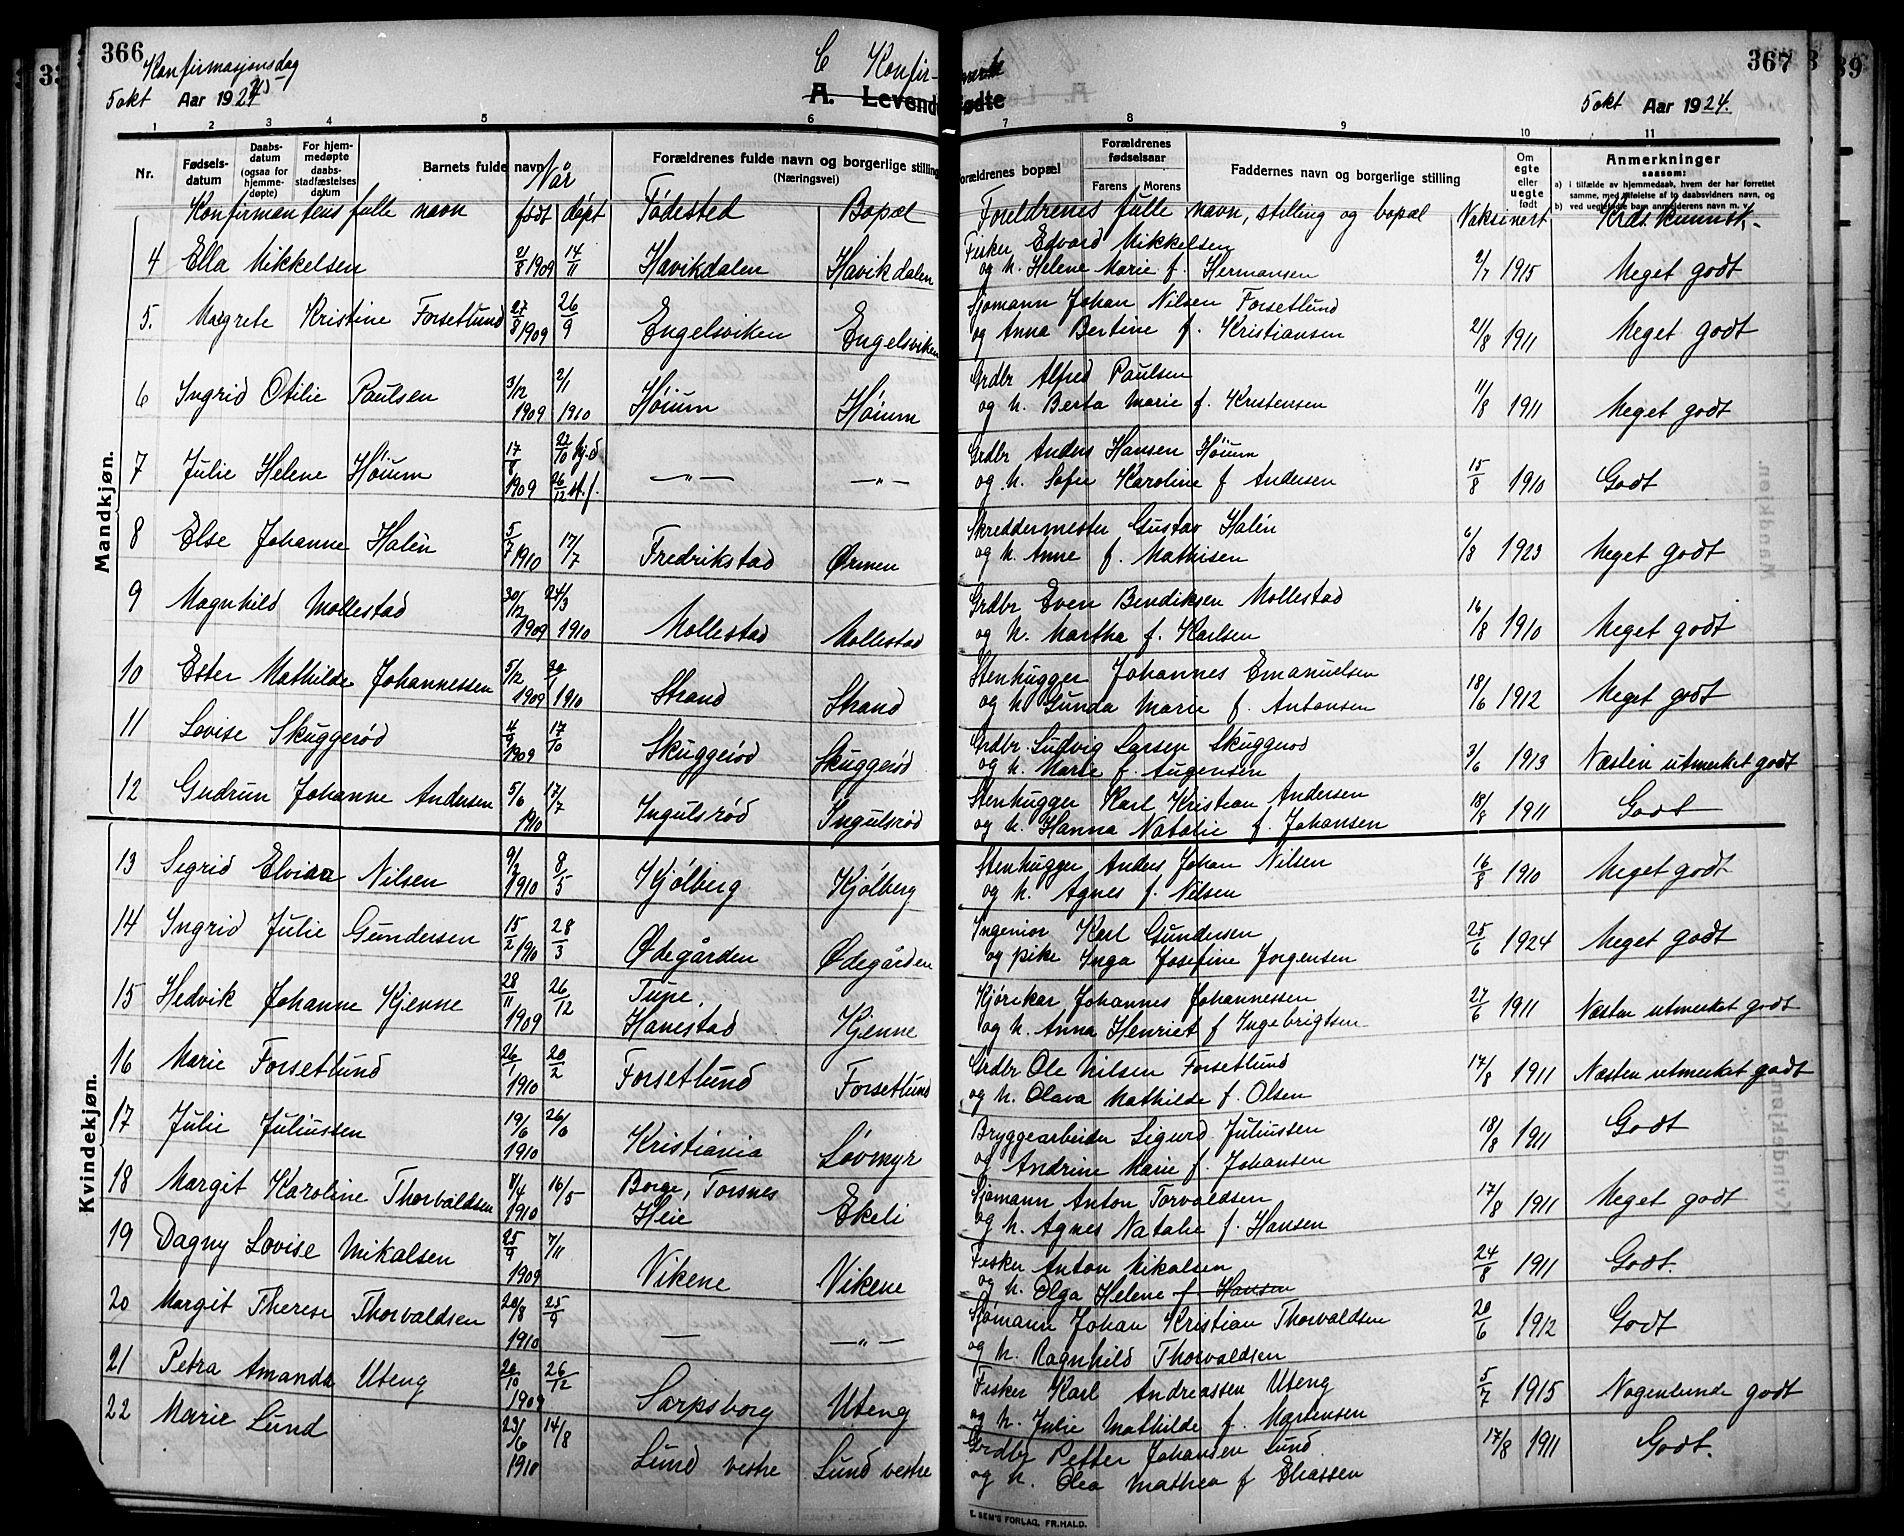 366
Konfirmasjonsdag
5 okt Aar 1924
C Konfir-
A. Levende
1 2 3 4 5 6
Nr.
Fødsels-
datum
Daabs-
datum
(ogsaa for
hjemme-
døpte)
For hjem-
medøpte
daabs-
stadfæstelses
datum
Barnets fulde navn
Når
Forældrenes fulde navn og borgerlige stilling
(Næringsvei)
Konfirmantens fulle navn født døpt Fødested Bopæl
Mandkjøn.
4 Ella Mikkelsen 2/8 1909 14/11 Havikdalen Havikdalen
5. Magrete Kristine Forsetlund 27/8 1909 26/9 Engelsviken Engelsviken
6 Ingrid Otilie Paulsen 3/12 1909 2/1 1910 Høium Høium
7 Julie Helene Høium 17/8 1909 22/10 hj.d 26/12 st.f. —"— —"—
8 Else Johanne Halén 5/7 1910 17/7 Fredrikstad Ørmen
9 Magnhild Mollestad 30/12 1909 24/3 1910 Mollestad Mollestad
10 Ester Mathilde Johannessen 5/12 1909 1910 Strand Strand
11 Lovise Skuggerød 4/9 1909 17/10 Skuggerød Skuggerød
12 Gudrun Johanne Andersen 5/6 1910 17/7 Ingulsrød Ingulsrød
Kvindekjøn.
13 Sigrid Nilsen 9/2 1910 8/5 Kjølberg Kjølberg
14 Ingrid Julie Gundersen 15/2 1910 28/3 Ødegården Ødegården
15 Hedvik Johanne Kjenne 28/11 1909 26/12 Tune, Hanestad Kjenne
16 Marie Forsetlund 26/1 1910 20/2 Forsetlund Forsetlund
17 Julie Juliussen 19/6 1910 Kristiania Løvmyr
18 Margit Karoline Thorvaldsen 8/4 1910 16/5 Borge, Torsnes Heie Ekeli
19 Dagny Lovise Mikalsen 25/9 1909 7/11 Vikene Vikene
20 Margit Therese Thorvaldsen 20/8 1910 25/9 — —"—
21 Petra Amanda Uteng 20/10 1909 26/12 Sarpsborg Uteng
22 Marie Lund 23/6 1910 14/8 Lund vestre Lund vestre
367
5 okt Aar 1924.
merte
fødte
7 8 9 10 11
Forældrenes bopæl
Forældrenes
fødselsaar
Farens Morens
Faddernes navn og borgerlige stilling
Om
egte
eller
uegte
født
Anmerkninger
saasom:
a) i tilfælde av hjemmedaab, hvem der har forrettet
samme, med tilføielse av to daabsvidners navn, og
b) ved uegtefødte barn anmelderens navn m. v.
Foreldrenes fulle navn, stilling og bopæl Vaksinert Krds.kunnsk.
Fisker Edvard Mikkelsen
og h. Helene Marie f. Hermansen 2/7 1915 Meget godt
Sjømann Johan Nilsen Forsetlund
og Anna Bertine f. Kristiansen 21/8 1911 Meget godt
Grdbr Alfred Paulsen
og h. Berta Marie f. Kristensen 11/8 1911 Meget godt
Grdbr Anders Hansen Høium
og h. Sofie Karoline f Andersen 15/8 1910 Godt
Skreddermester Gustav Halén
og h. Anne f. Mathisen 6/8 1923 Meget godt
Grdbr Even Bendiksen Mollestad
og h. Martha f. Karlsen 16/8 1910 Meget godt
Stenhugger Johannes Emanuelsen
og h Gunda Marie f. Antonsen 18/6 1912 Meget godt
Grdbr. Ludvig Larsen Skuggerød
og h. Marie f. Augensen 3/6 1913 Næsten utmerket godt
Stenhugger Karl Kristian Andersen
og h. Hanna Natalie f. Johansen 18/8 1911 Godt
Stenhugger Anders Johan Nilsen
og h. Agnes f. Nilsen 16/8 1910 Meget godt
Ingeniør Karl Gundersen
og pike Inga Josefine Jørgensen 25/6 1924 Meget godt
Kjørekar Johannes Johannessen
og h. Anna Henriet f Ingebrigtsen 27/6 1911 Næsten utmerket godt
Grdbr Ole Nilsen Forsetlund
og h. Olava Mathilde f. Olsen 17/8 1911 Næsten utmerket godt
Bryggearbeider Sigurd Juliussen
og Andrine Marie f. Johansen 18/8 1911 Godt
Sjømann Anton Torvaldsen
og h. Agnes Natalie f. Hansen 17/8 1911 Meget godt
Fisker Anton Mikalsen
og h. Olga Helene f Hansen 24/8 1911 Godt.
Sjømann Johan Kristian Thorvaldsen
og h. Ragnhild Thorvaldsen 20/6 1912 Godt
Fisker Karl Andreassen Uteng
og h. Julie Mathilde f. Martensen 5/7 1915 Nogenlunde godt
Grdbr Petter Johansen Lund
og h. Olea Mathea f Eliassen 17/8 1911 Godt.
E. SEM'S FORLAG, FR.HALD.